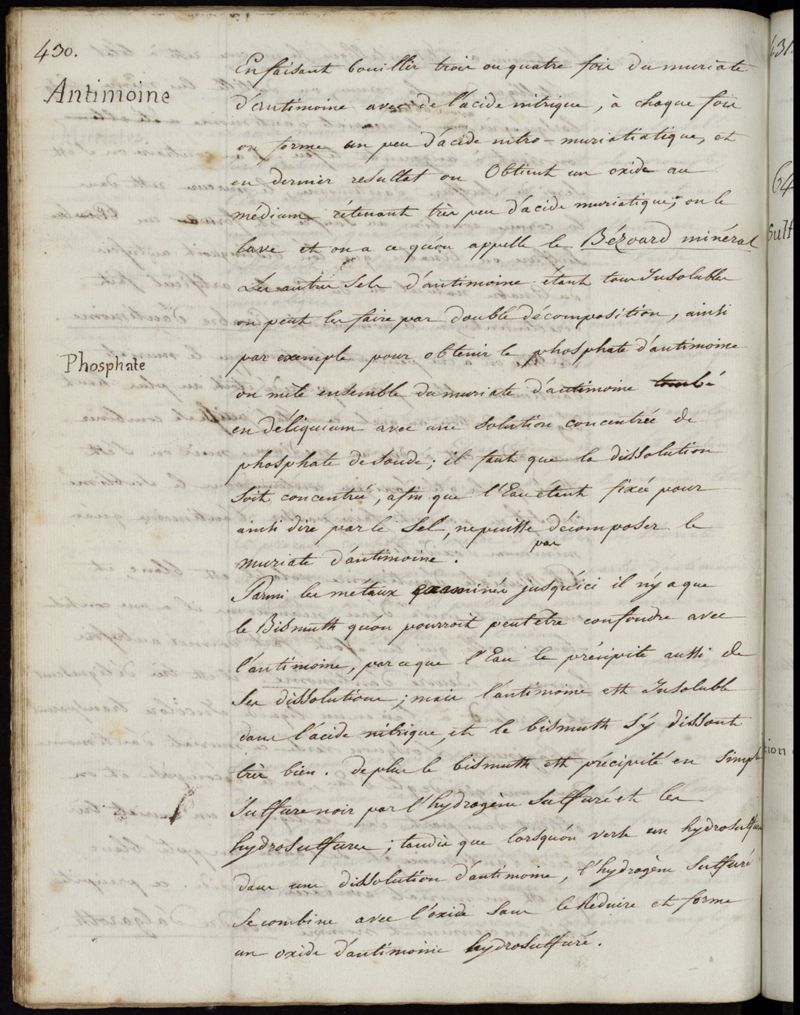 430.
Antimoine
En faisant bouillir trois ou quatre fois du muriate
d'antimoine avec de l'acide nitrique, à chaque fois
on forme un peu d'acide nitro-muriatiatique, et
en dernier resultat on Obtient un oxide au
médium rétenant très peu d'acide muriatique; on le
lave et on a ce qu'on appelle le Bézoard minéral
Les autres Sels d'antimoine étant tous Insolubles
on peut les faire par double décomposition, ainsi
Phosphate
par exemple pour obtenir le phosphate d'antimoine
on mèle ensemble du muriate d'antimoine tombé
en déliquium avec une solution concentrée de
phosphate de soude; il faut que la dissolution
soit concentrée, afin que l'Eau étant fixée pour
ainsi dire par le Sel, ne puisse décomposer le
muriate d'antimoine.
par
Parmi les métaux examinés jusqu'ici il n'y a que
le Bismuth qu'on pourroit peut être confondre avec
l'antimoine, parce que l'Eau le précipite aussi de
Ses dissolutions; mais l'antimoine est Insoluble
dans l'acide nitrique, et le bismuth s'y dissout
très bien. De plus le bismuth est précipité en Simple
Sulfure noir par l'hydrogène Sulfuré et les
hydrosulfures; tandis que lorsqu'on verse un hydrosulfure
dans une dissolution d'antimoine, l'hydrogène Sulfuré
Se combine avec l'oxide Sans le Réduire et forme
un oxide d'antimoine hydrosulfuré.
431.
64
Sulf
tion